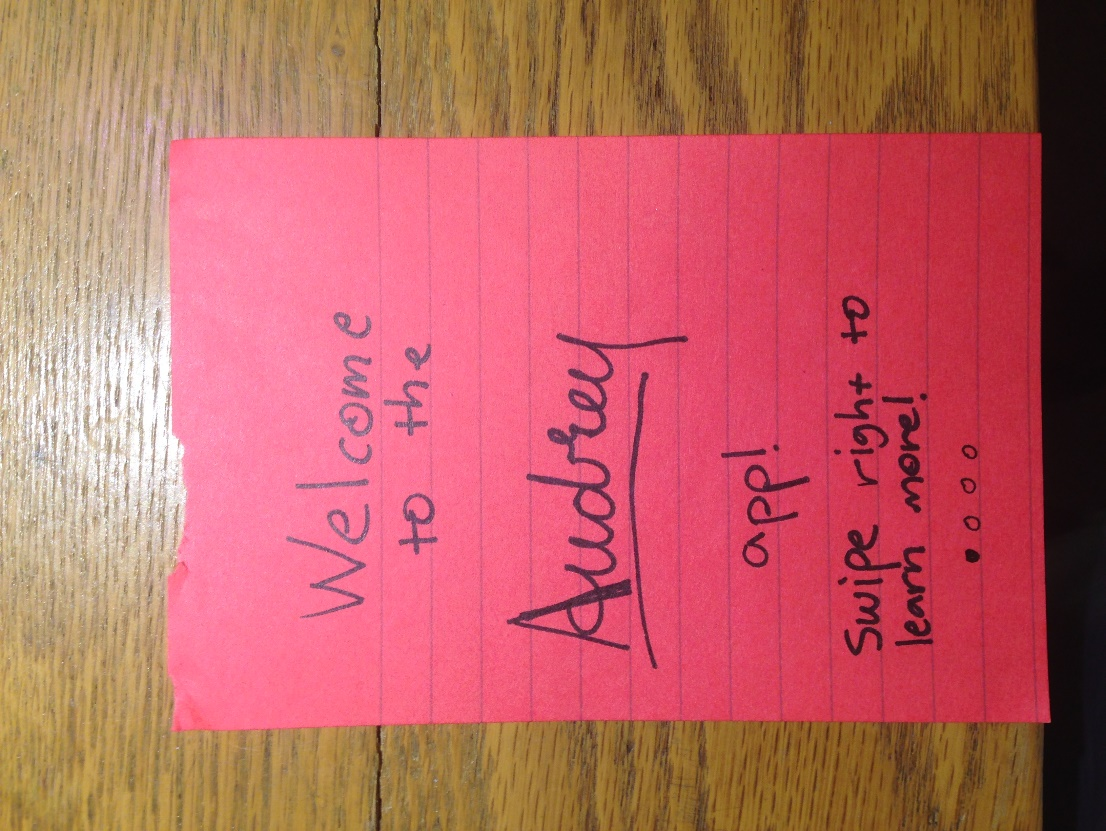 Welcome
to the
Audrey
app!
Swipe right to
learn more!